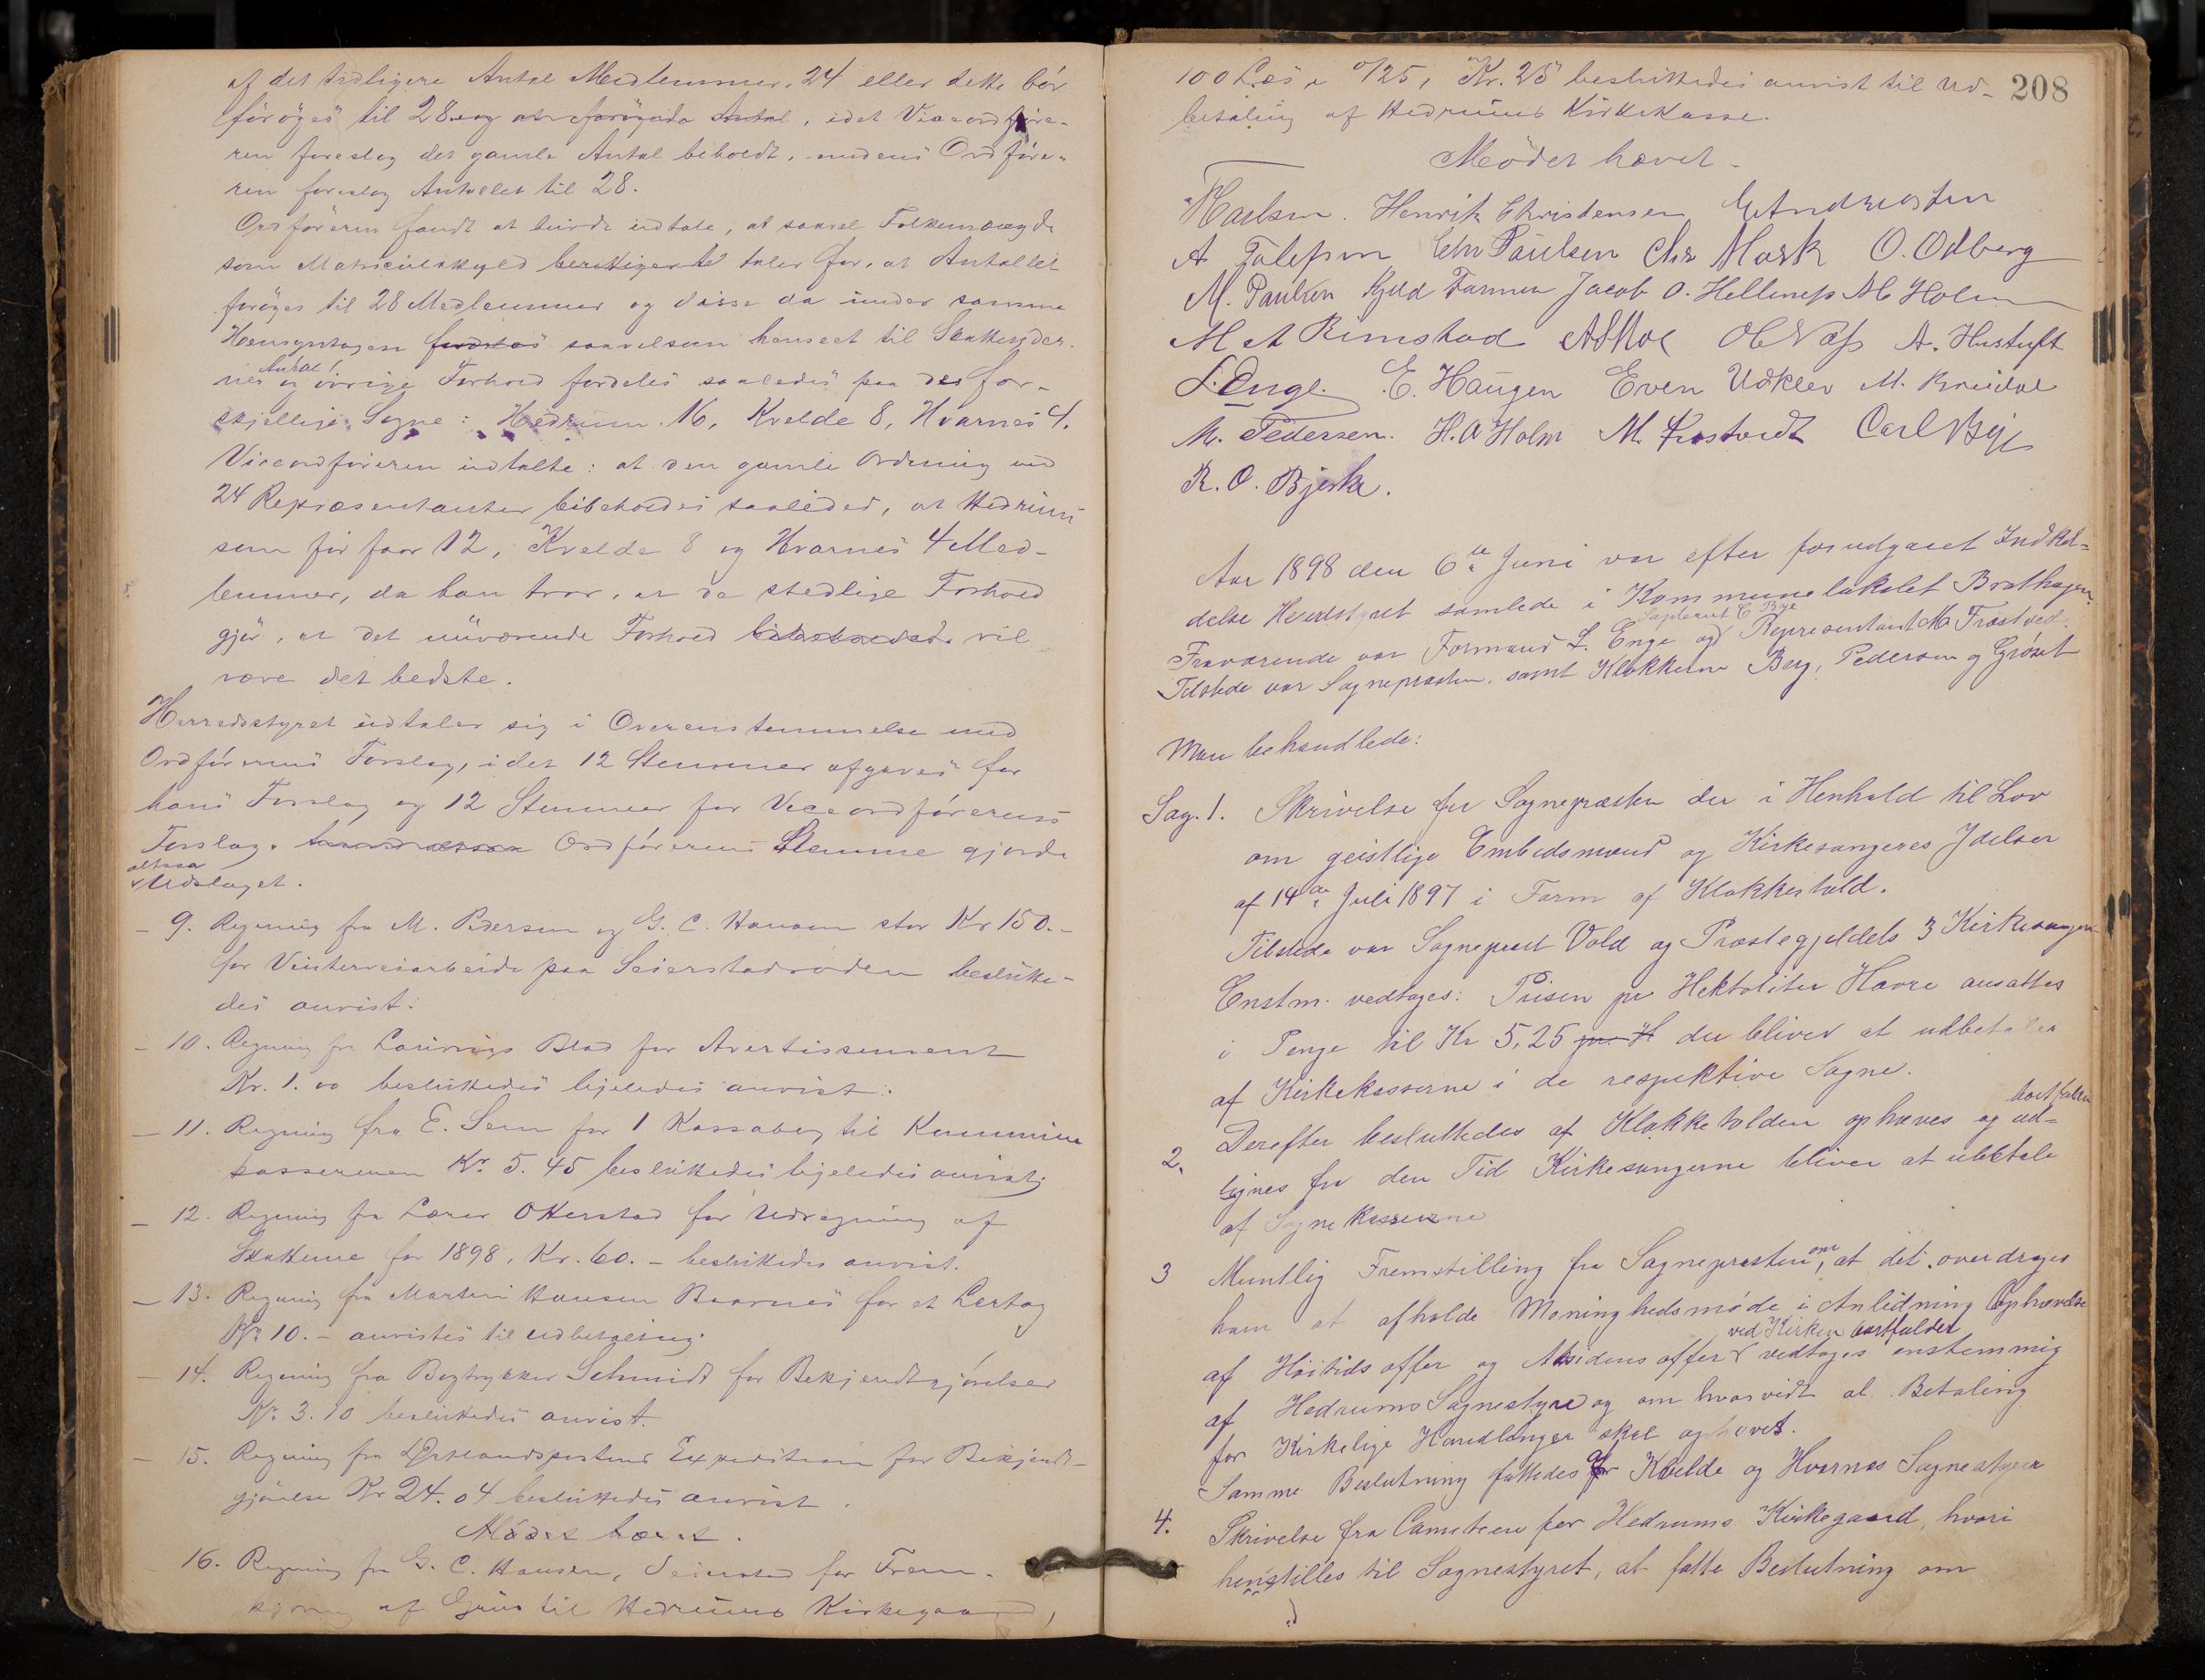 af det tidligere Antal Medlemmer, 24 eller dette bör
forøges til 28 , idet Viceordføre-
ren foreslog det gamle Antal beholdt, medens Ordføre-
ren foreslog Antallet til 28.
Ordføreren fandt at burde udtale, at saavel Folkemængde
som Matriculskyld berettigende taler for, at Antallet
forøges til 28 Medlemmer og disse da under samme
Hensyntagen saavelsom henseet til Skatteyder-
nes Antal og øvrige Forhold fordeles saaledes paa de for-
skjellige Sogne: Hedrum 16, Kvelde 8, Hvarnes 4.
Viceordføreren udtalte: at den gamle Ordning med
24 Repræsentanter bibeholdes saaledes, at Hedrum
som før faar 12, Kvelde 8 og Hvarnes 4 Med-
lemmer, da han tror, at de stedlige Forhold
gjør, at det nuværende Forhold vil
være det bedste.
Herredsstyret udtaler sig i Overenstemmelse med
Ordførerens Forslag, idet 12 Stemmer afgaves for
hans Forslag og 12 Stemmer for Viceordførerens
Forslag. Ordførerens Stemme gjorde
altsaa Udslaget.
- 9. Regning fra M. Pedersen og G. C. Hansen stor Kr 150.-
for Vinterveiarbeide paa Seierstadroden beslutte-
des anvist.
- 10. Regning fra Laurvigs Blad for Avertissement
Kr. 1.00 besluttedes ligeledes anvist.
- 11. Regning fra E. Sem for 1 Kassabog til Kommune
kassereren Kr. 5.45 besluttedes ligeledes anvist.
- 12. Regning fra Lærer Otterstad for Udregning af
Skatterne for 1898, Kr. 60.- besluttedes anvist.
- 13. Regning fra Martin Hansen Baarnes for et Lertag
Kr. 10.- anvistes til udbetaling.
- 14. Regning fra Bogtrykker Schmidt for Bekjendtgjørelser
Kr. 3.10 besluttedes anvist.
- 15. Regning fra Østlandspostens Expedition for Bekjendt-
gjørelse Kr 24.04 besluttedes anvist.
Mødet hævet.
16. Regning fra G. C. Hansen, Seierstad for Frem-
kjøring af Grus til Hedrums Kirkegaard,
208
100 Læs a 0/25, Kr. 25 besluttedes anvist til Ud-
betaling af Hedrums Kirkekasse.
Mødet hævet.
Henrik Christensen G Andresen
Chr Paulsen Chr Mørk O. Odberg
M. Paulsen Kjeld Farmen Jacob O. Hellenes Ab Holm
M A Rimstad A S Moe Ol Næss A. Hustuft
L. Enge. E. Haugen Even Udklev M.
M. Pedersen. H. A Holm M. Frostvedt Carl Bye
R. O. Bjerke.
Aar 1898 den 6te Juni var efter forudgaaet Indkal-
delse Herredstyret samlede i Kommunelokalet Brathagen.
Fraværende var Formand L. Enge og Suppleant C Bye Representant M Frostved.
Tilstede var Sognepræsten, samt Klokkerne Berg, Pedersen og Grøset
Man behandlede:
Sag. 1. Skrivelse fra Sognepræsten der i Henhold til Lov
om geistlige Embedsmænd og Kirkesangeres Ydelser
af 14de Juli 1897 i Form af Klokkertold.
Tilstede var Sogneprest Vold og Præstegjeldets 3 Kirkesangere
Enstm. vedtoges: Prisen pr Hektoliter Havre ansattes
i Penge til Kr 5,25 pr. H der bliver at udbetales
af Kirkekasserne i de respektive Sogne.
2. Derefter besluttedes af Klokketolden ophæves og bortfalder ud-
lignes fra den Tid Kirkesangerne bliver at ubetale
af Sognekasserne
3 Muntlig Fremstilling fra Sognepræsten, om at det overdrages
ham at afholde Meninghedsmøde i Anledning Ophævelse
af Høitidsoffer og Aksidensoffer ved Kirken bortfalder vedtoges enstemmig
af Hedrums Sognestyre og om hvorvidt al Betaling
for Kirkelige Handlinger skal ophøves.
Samme Beslutning fattedes for Kvelde og Hvarnes Sognestyrer
4. Skrivelse fra Comiteen for Hedrums Kirkegaard, hvori
henstilles til Sognestyret, at fatte Beslutning om